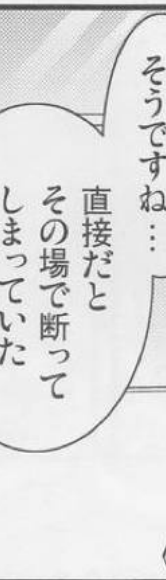 そうですね…
直接だと
その場で断って
しまっていた